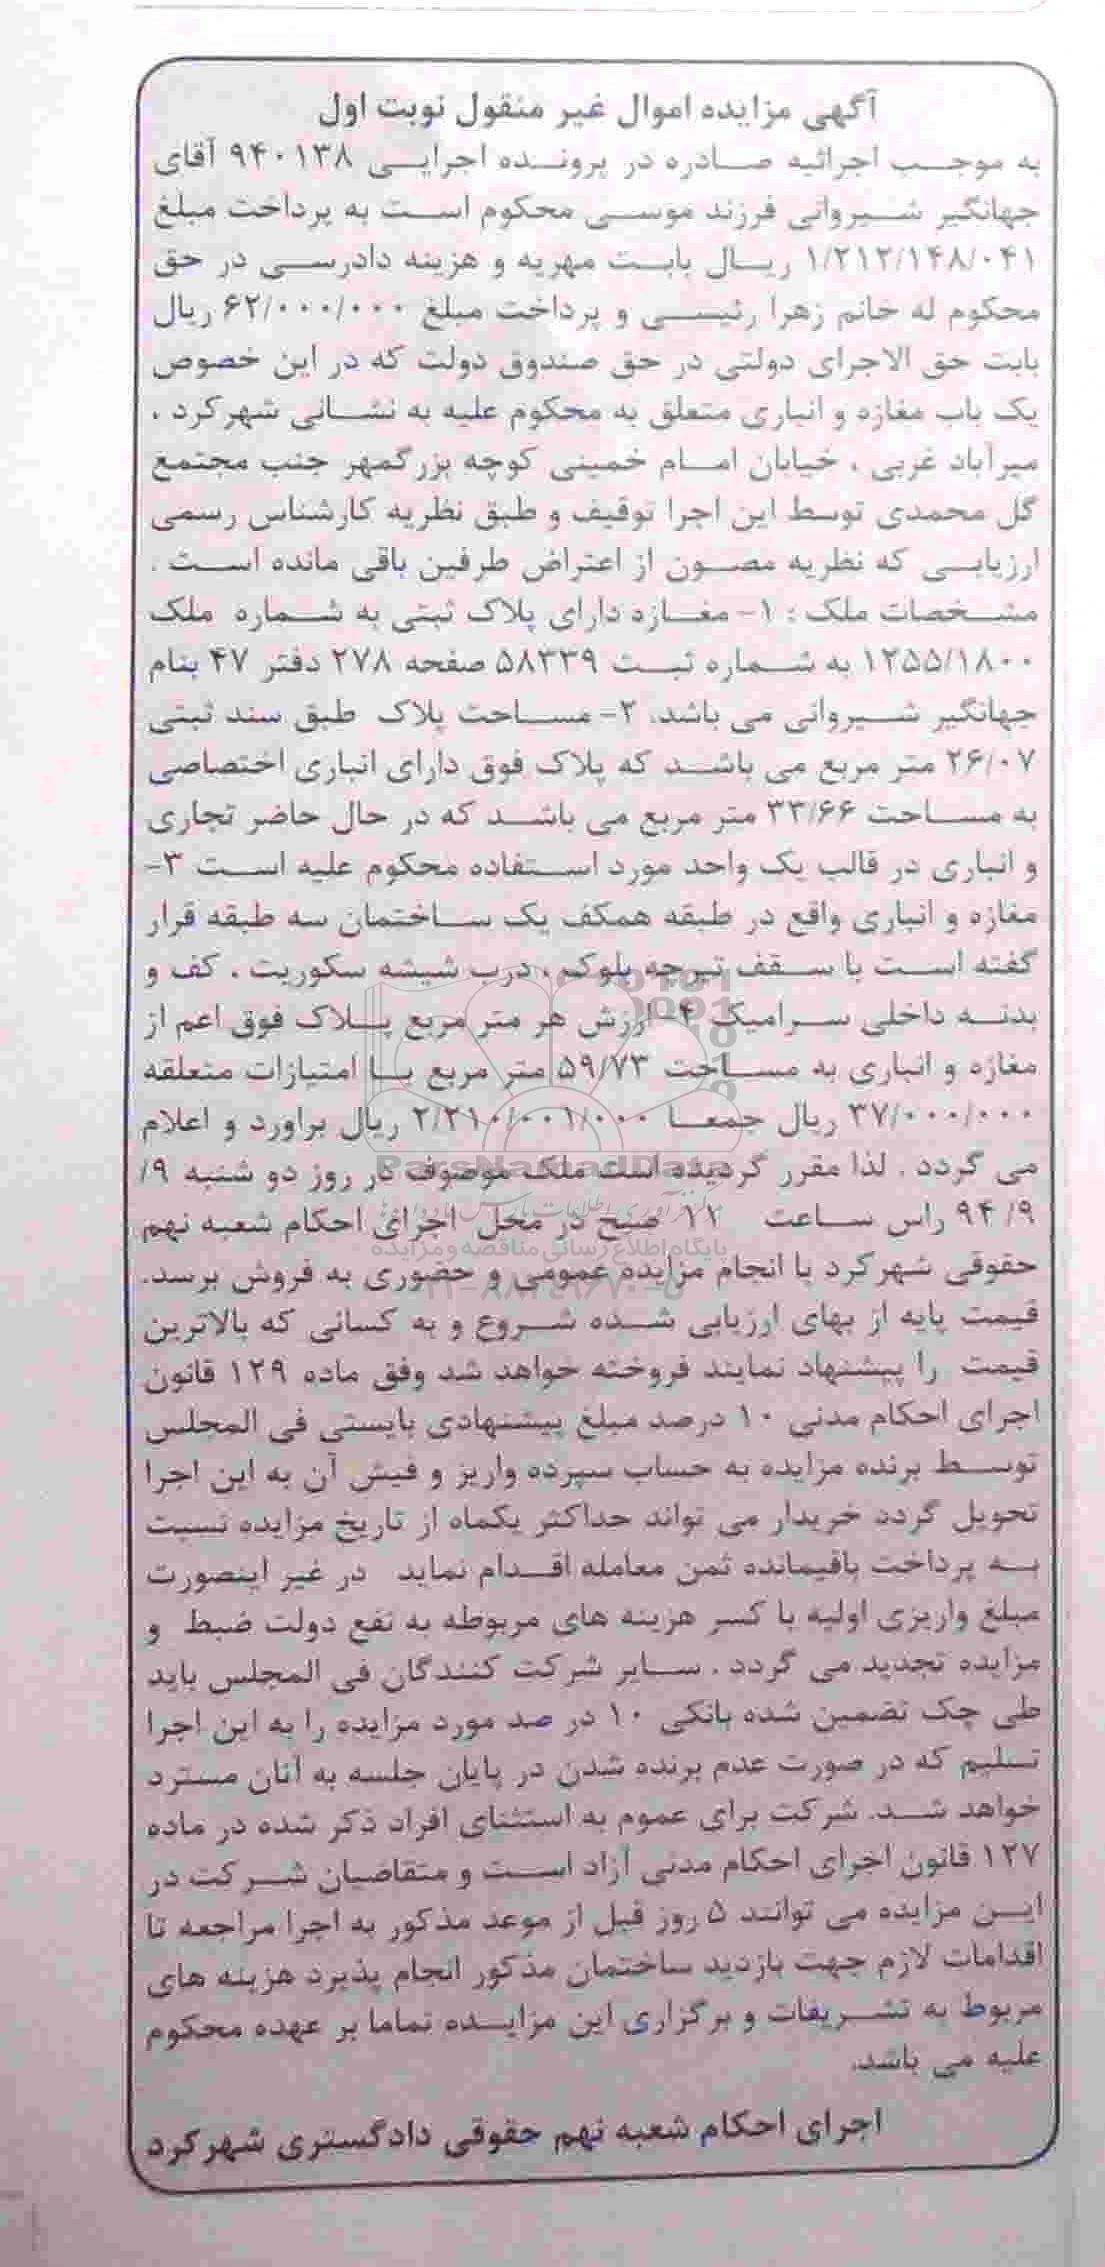 آگهی مزایده اموال غیر منقول نوبت اول
به موجب اجرائیه صادره در پرونده اجرایی ۹۴۰۱۳۸ آقای
جهانگیر شیروانی فرزند موسی محکوم است به پرداخت مبلغ
۱/۲۱۲/۱۴۸/۰۴۱ ریال بابت مهریه و هزینه دادرسی در حق
محکوم له خانم زهرا رئیسی و پرداخت مبلغ ۶۲/۰۰۰/۰۰۰ ریال
بابت حق الاجرای دولتی در حق صندوق دولت که در این خصوص
یک باب مغازه و انباری متعلق به محکوم علیه به نشانی شهرکرد ،
میرآباد غربی ، خیابان امام خمینی کوچه بزرگمهر جنب مجتمع
گل محمدی توسط این اجرا توقیف و طبق نظریه کارشناس رسمی
ارزیابی که نظریه مصون از اعتراض طرفین باقی مانده است .
مشخصات ملک : ۱- مغازه دارای پلاک ثبتی به شماره ملک
۱۲۵۵/۱۸۰۰ به شماره ثبت ۵۸۳۳۹ صفحه ۲۷۸ دفتر ۴۷ بنام
جهانگیر شیروانی می باشد. ۲- مساحت پلاک طبق سند ثبتی
۲۶/۰۷ متر مربع می باشد که پلاک فوق دارای انباری اختصاصی
به مساحت ۳۳/۶۶ متر مربع می باشد که در حال حاضر تجاری
و انباری در قالب یک واحد مورد استفاده محکوم علیه است ۳-
مغازه و انباری واقع در طبقه همکف یک ساختمان سه طبقه قرار
گفته است با سقف تیرچه بلوک ، درب شیشه سکوریت ، کف و
بدنه داخلی سرامیک ۴-ارزش هر متر مربع پلاک فوق اعم از
مغازه و انباری به مساحت ۵۹/۷۳ متر مربع با امتیازات متعلقه
۳۷/۰۰۰/۰۰۰ ریال جمعا ۲/۲۱۰/۰۰۱/۰۰۰ ریال براورد و اعلام
می گردد . لذا مقرر گردیده است ملک موصوف در روز دو شنبه ۹/
۹۴/۹ راس ساعت ۱۱ صبح در محل اجرای احکام شعبه نهم
حقوقی شهرکرد با انجام مزایده عمومی و حضوری به فروش برسد.
قیمت پایه از بهای ارزیابی شده شروع و به کسانی که بالاترین
قیمت را پیشنهاد نمایند فروخته خواهد شد وفق ماده ۱۲۹ قانون
اجرای احکام مدنی ۱۰ درصد مبلغ پیشنهادی بایستی فی المجلس
توسط برنده مزایده به حساب سپرده واریز و فیش آن به این اجرا
تحویل گردد خریدار می تواند حداکثر یکماه از تاریخ مزایده نسبت
به پرداخت باقیمانده ثمن معامله اقدام نماید در غیر اینصورت
مبلغ واریزی اولیه با کسر هزینه های مربوطه به نفع دولت ضبط و
مزایده تجدید می گردد . سایر شرکت کنندگان فی المجلس باید
طی چک تضمین شده بانکی ۱۰ در صد مورد مزایده را به این اجرا
تسلیم که در صورت عدم برنده شدن در پایان جلسه به آنان مسترد
خواهد شد. شرکت برای عموم به استثنای افراد ذکر شده در ماده
۱۲۷ قانون اجرای احکام مدنی آزاد است و متقاضیان شرکت در
این مزایده می توانند ۵ روز قبل از موعد مذکور به اجرا مراجعه تا
اقدامات لازم جهت بازدید ساختمان مذکور انجام پذیرد هزینه های
مربوط به تشریفات و برگزاری این مزایده تماما بر عهده محکوم
علیه می باشد.
اجرای احکام شعبه نهم حقوقی دادگستری شهرکرد
ParsNamadData
پایگاه اطلاع رسانی مناقصه و مزایده